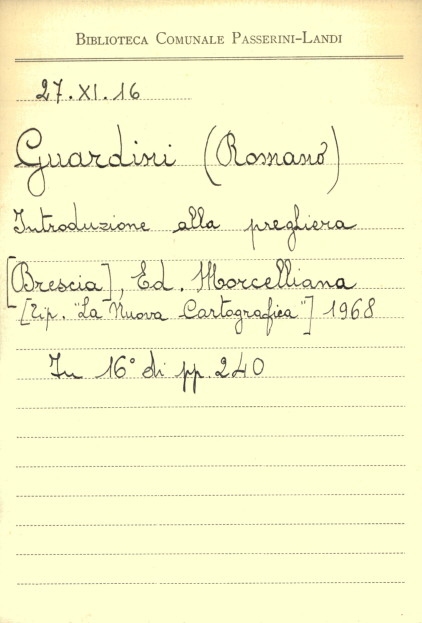 BIBLIOTECA COMUNALE PASSERINI-LANDI
27.XI.16
Guardini (Romano)
Introduzione alla preghiera
[Brescia], Ed. Morcelliana
[Tip. "La Nuova Cartografica"] 1968
In 16° di pp. 240